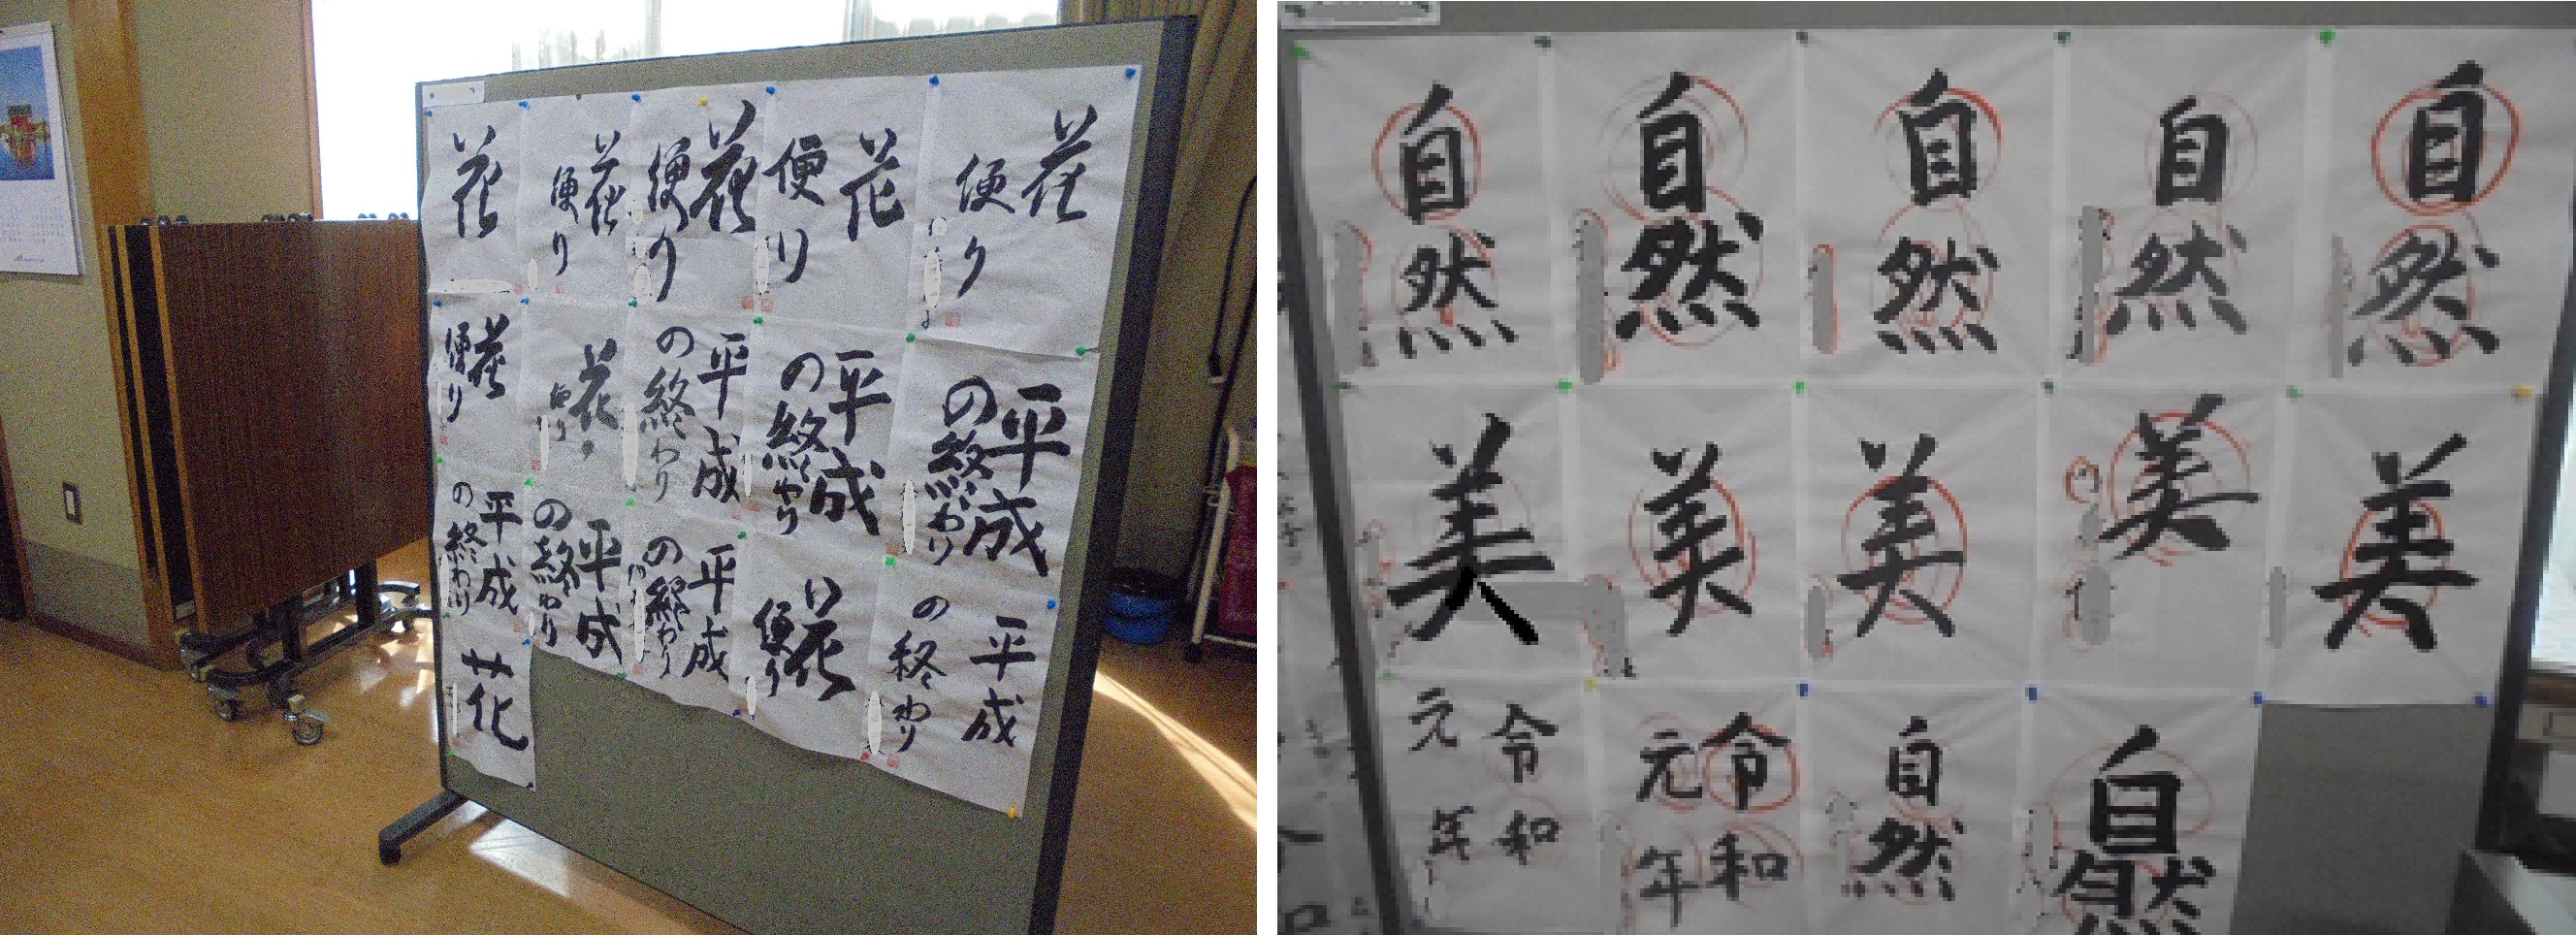 花
花
便り
花
便り
花
便り
花
便り
花
便り
花
便り
平成
の終わり
平成
の終わり
平成
の終わり
平成
の終わり
平成
の終わり
平成
の終わり
花
便り
平成
の終わり
花
自然
自然
自然
自然
自然
美
美
美
美
美
令和
元年
令和
元年
自然
自然